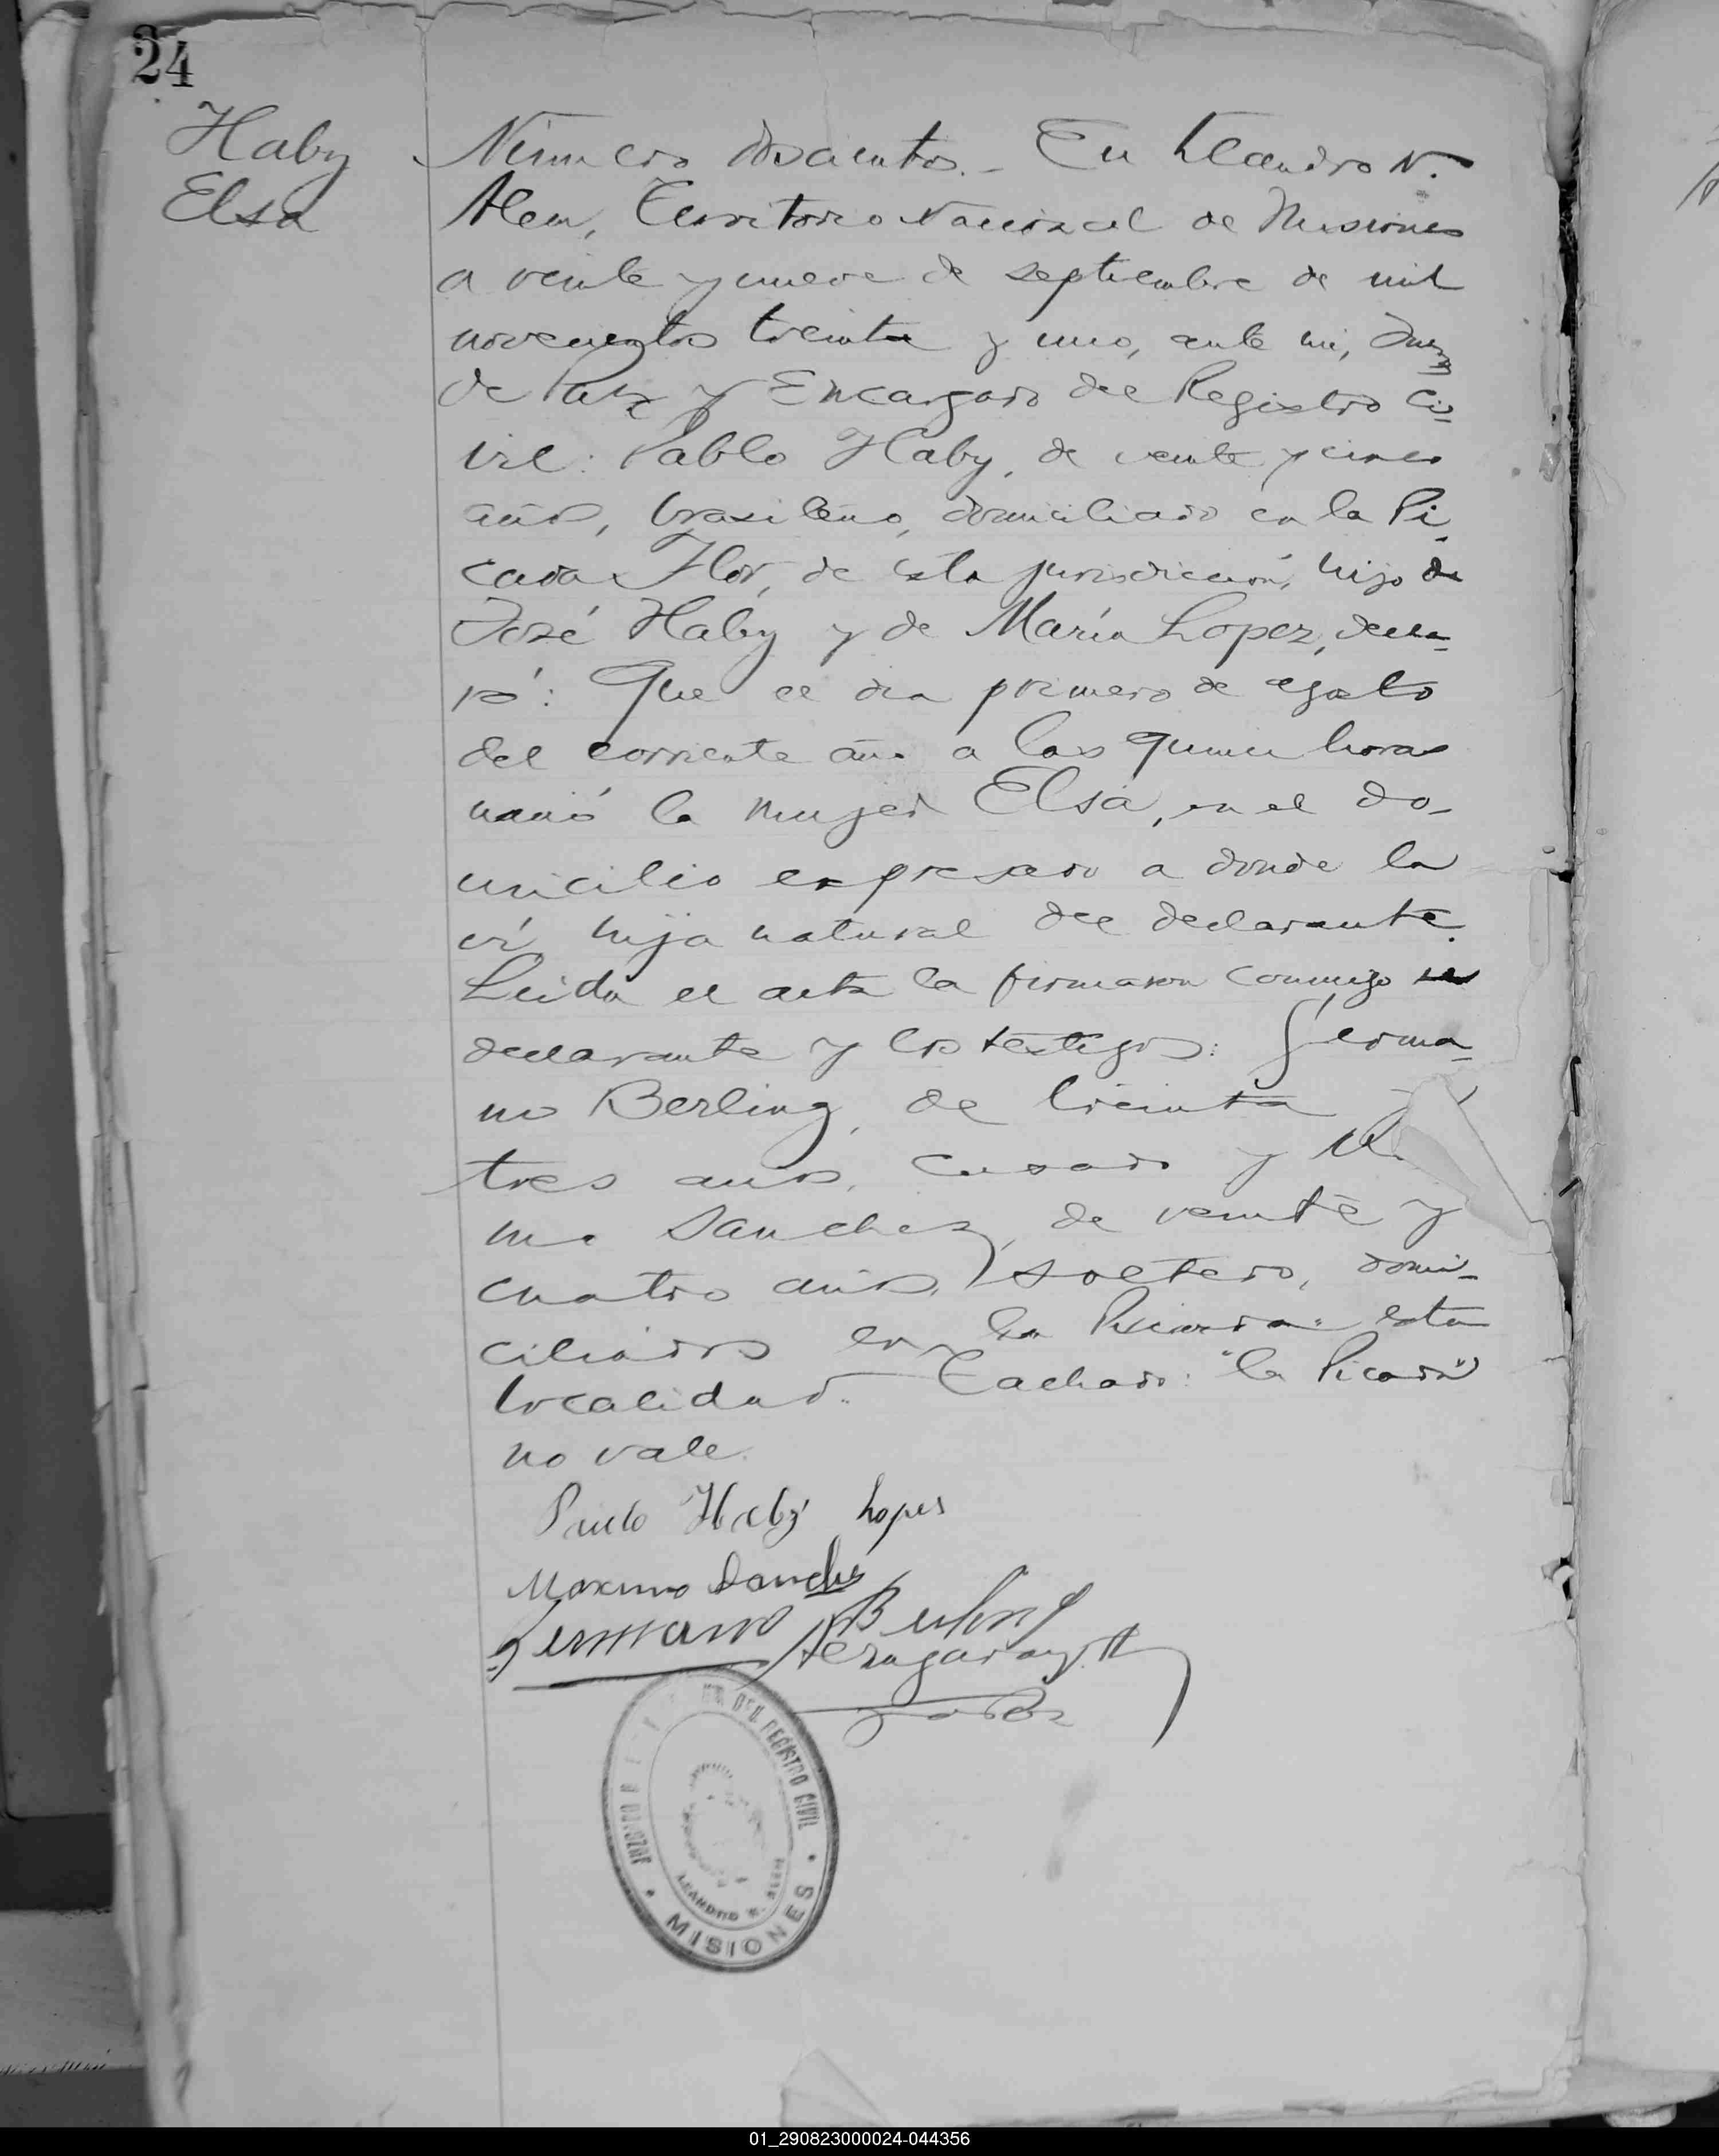 24
Haby
Elsa
Número doscientos.- En Leandro N.
Alem, Territorio Nacional de Misiones
a veinte y nueve de septiembre de mil
novecientos treinta y uno, ante mi, Juez
de Paz y Encargado del Registro Ci-
vil: Pablo Haby, de veinte y cinco
años, brasileño, domiciliado en la Pi-
cada Flor, de esta jurisdicción, hijo de
José Haby y de María Lopez, decla-
ró: Que el dia primero de agosto
del corriente año a las quince horas
nació la mujer Elsa, en el do-
micilio expresado a donde la
ví, hija natural del declarante.
Leida el acta la firmaron conmigo el
declarante y los testigos: Germa-
no Berling, de treinta y
tres años, casado y
mo Sanchez, de veinte y
cuatro años, soltero, domi-
ciliados en la Picada esta
localidad. Tachado: "la Picada"
no vale.
Paulo Haby Lopes
Maximo Sanchez
Germano Berling
Juez de Paz
REGISTRO CIVIL
JUZGADO
LEANDRO N. ALEM
MISIONES
01_290823000024-044356